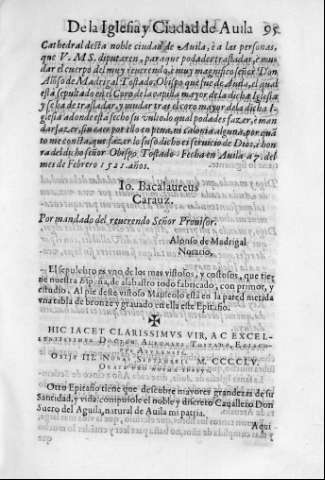 De la Iglesia y Ciudad de Auila 95
Cathedral desta noble ciudad de Auila, è a las personas,
que V. M. S. diputaren, para que podades trasladar, è mu-
dar el cuerpo del muy reuerendo, è muy magnifico señor Don
Alõso de Madrigal Tostado, Obispo que fue de Auila, el qual
està sepultado en el Coro de la capilla mayor de la dicha Iglesia
y se ha de trasladar, y mudar tras el coro mayor de la dicha I-
glesia adonde està fecho su vulto lo qual podades fazer, è man-
dar fazer, sin caer por ello en pena, ni calonia alguna, por quã
to me consta, que fazer lo suso dicho es seruicio de Dios, è hon
ra del dicho señor Obispo Tostado. Fecha en Auila a 7. del
mes de Febrero 1521. años.
Io. Bacalaureus
Carauz.
Por mandado del reuerendo Señor Prouisor.
Alonso de Madrigal
Notario.
El sepulcro es vno de los mas vistosos, y costosos, que tie-
ne nuestra España, de alabastro todo fabricado, con primor, y
estudio. Al pie deste vistoso Mauseolo està en la pared metida
vna tabla de bronze y grauado en ella este Epitafio.
HIC IACET CLARISSIMVS VIR, AC EXCEL-
LENTISSIMVS DOCTOR ALPHONSVS TOSTADO, EPISCO-
PVS ABVLENSIS.
OBIIT III. NONAS SEPTEMBRIS M. CCCCLV.
Otro Epitafio tiene que descubre mayores grandezas de su
Santidad, y vida: compusole el noble y discreto Cauallero Don
Suero del Aguila, natural de Auila mi patria.
Aqui